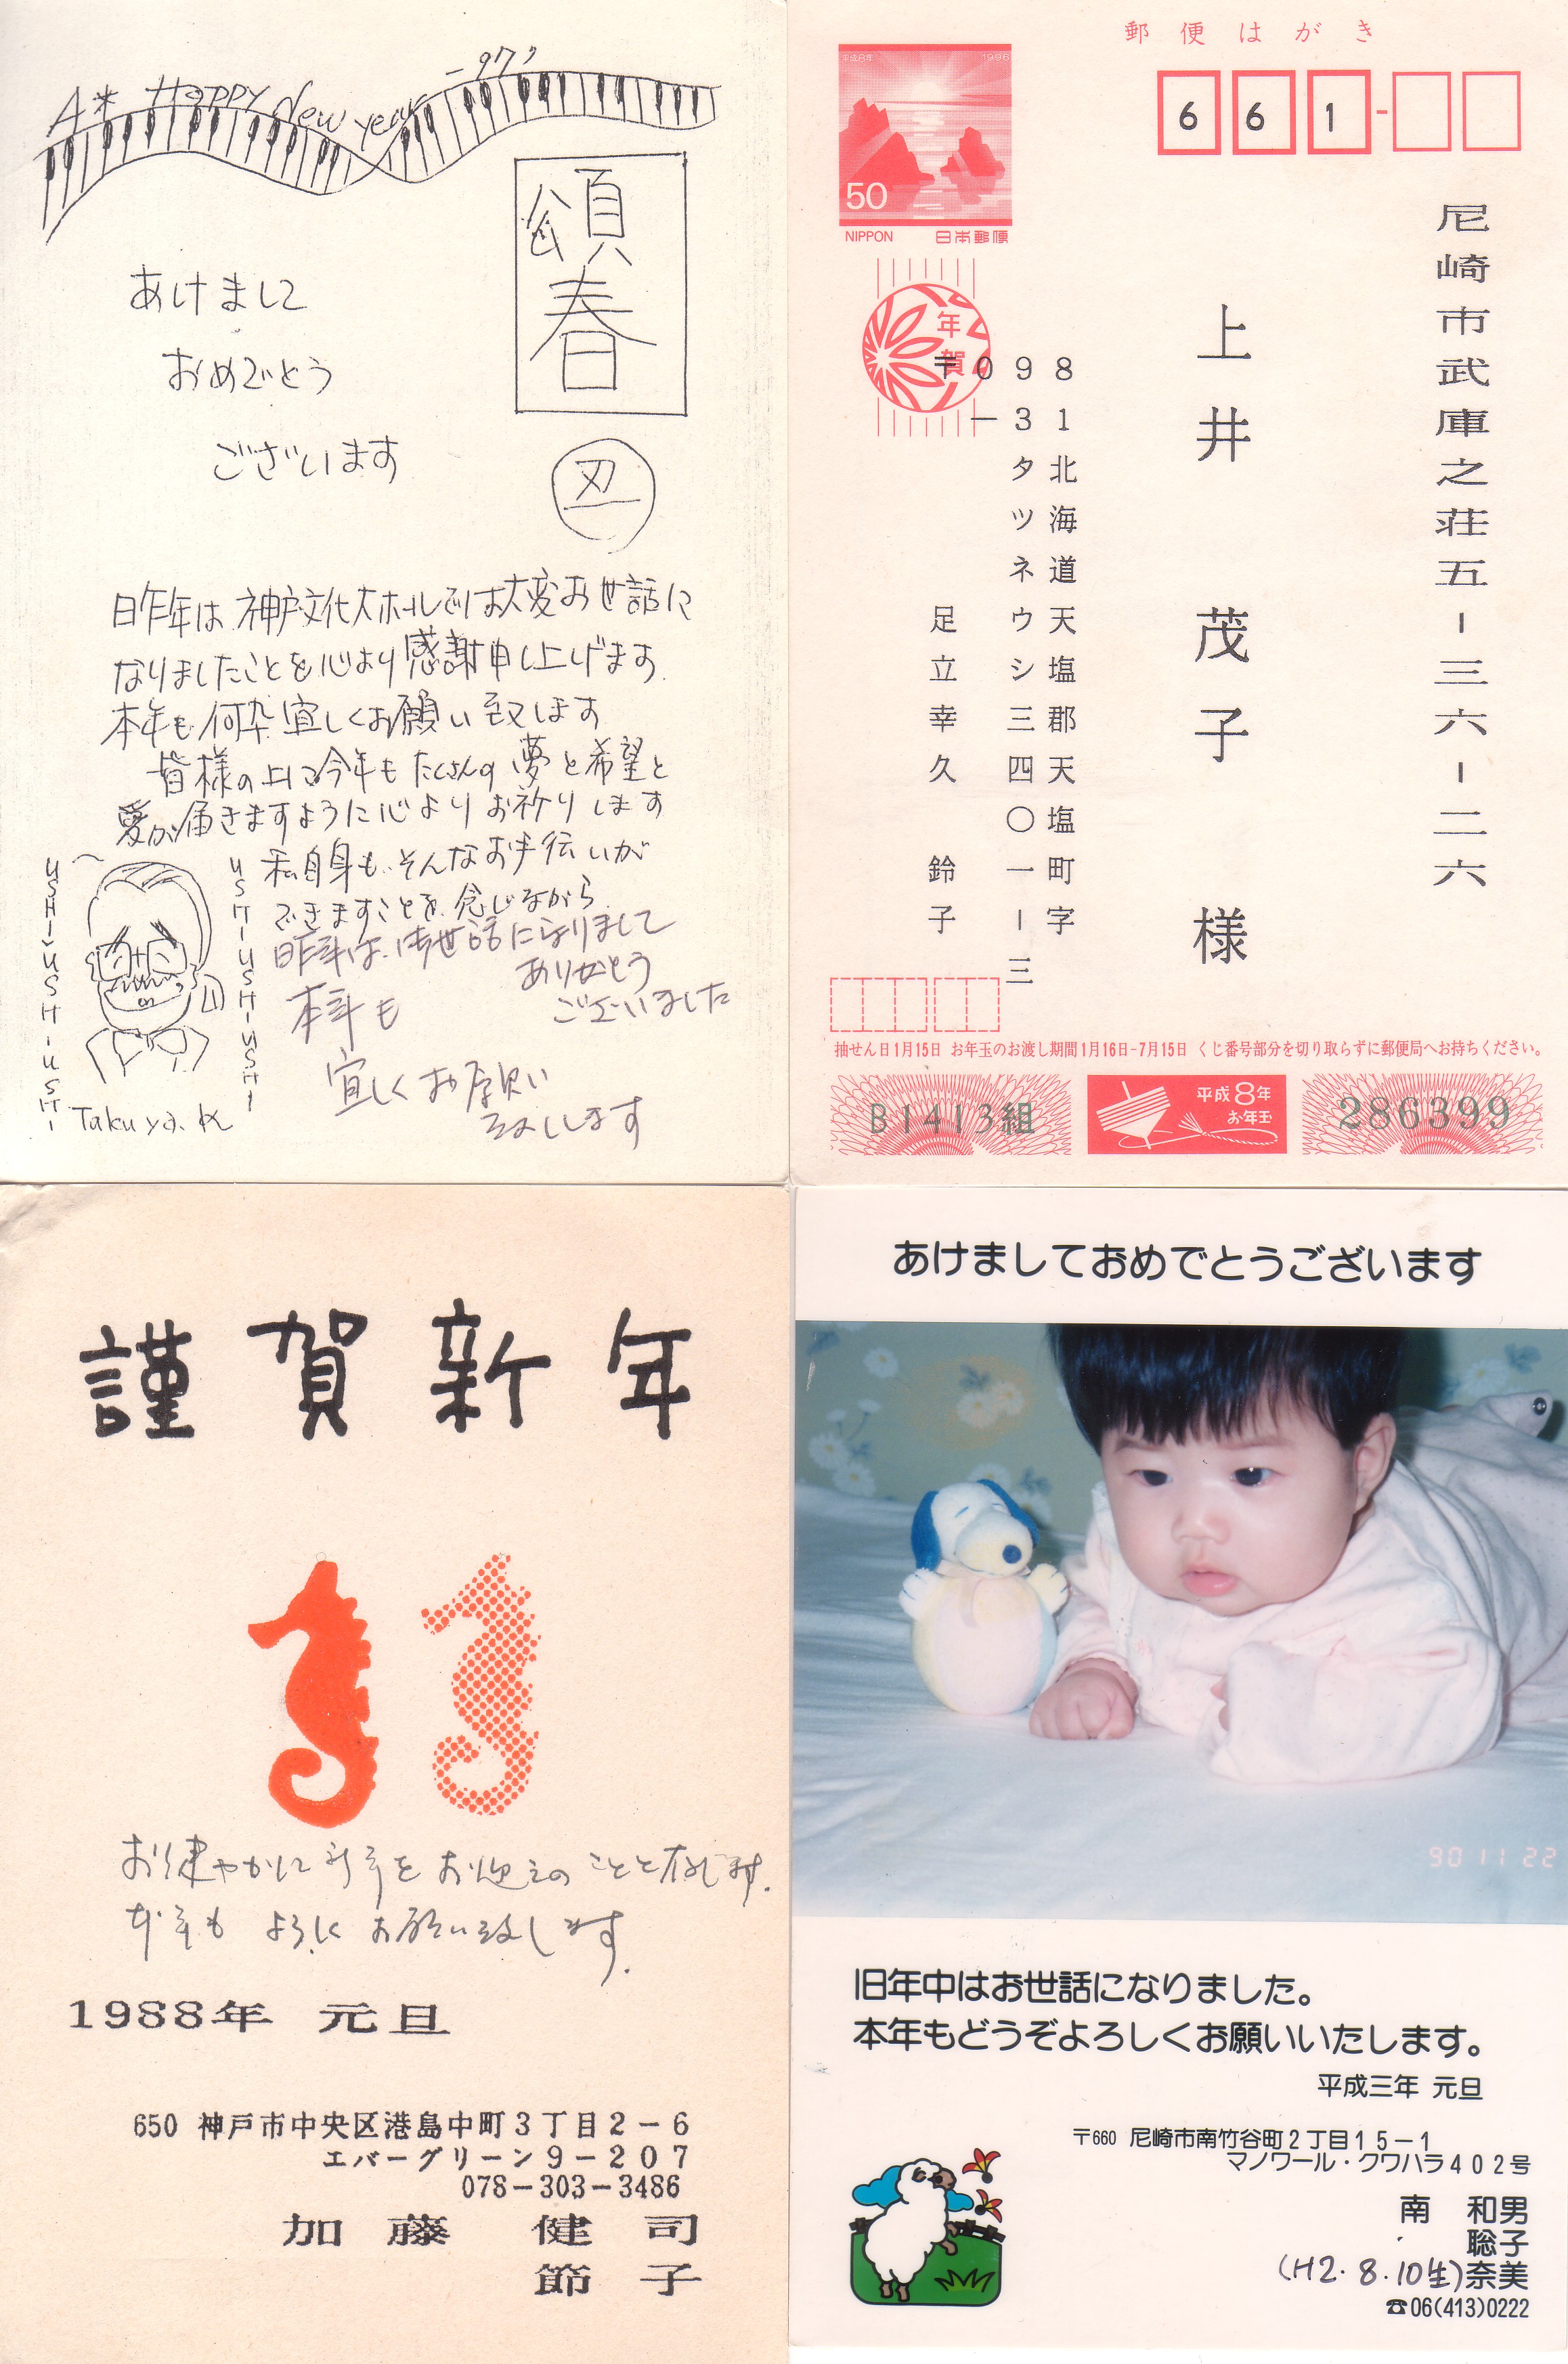 A* Happy New year -97'
頌春
あけまして
おめでとう
ございます
丑
昨年は神戸文化大ホールでは大変お世話に
なりましたことを心より感謝申し上げます
本年も何卒宜しくお願い致します
皆様の上に今年もたくさんの夢と希望と
愛が届きますように心よりお祈りします
私自身も、そんなお手伝いが
できますことを念じながら
昨年は、お世話になりまして
ありがとう
ございました
本年も
宜しくお願い
致します
USHI-USHI-USHI-
USHI-USHI-USHI
Takuya.K
郵便はがき
平成8年 1996
50
NIPPON 日本郵便
661-
年賀
尼崎市武庫之荘五-三六-二六
上井 茂子 様
〒098
-31
北海道天塩郡天塩町字
タツネウシ三四〇一-三
足立幸久
鈴子
抽せん日1月15日 お年玉のお渡し期間1月16日-7月15日 くじ番号部分を切り取らずに郵便局へお持ちください。
B1413組
平成8年
お年玉
286399
謹賀新年
お健やかに新年をお迎えのことと存じます.
本年もよろしくお願い致します.
1988年 元旦
650 神戸市中央区港島中町3丁目2-6
エバーグリーン9-207
078-303-3486
加藤 健司
節子
あけましておめでとうございます
90 11 22
旧年中はお世話になりました。
本年もどうぞよろしくお願いいたします。
平成三年 元旦
〒660 尼崎市南竹谷町2丁目15-1
マノワール・クワハラ402号
南 和男
聡子
(H2.8.10生)奈美
☎06(413)0222